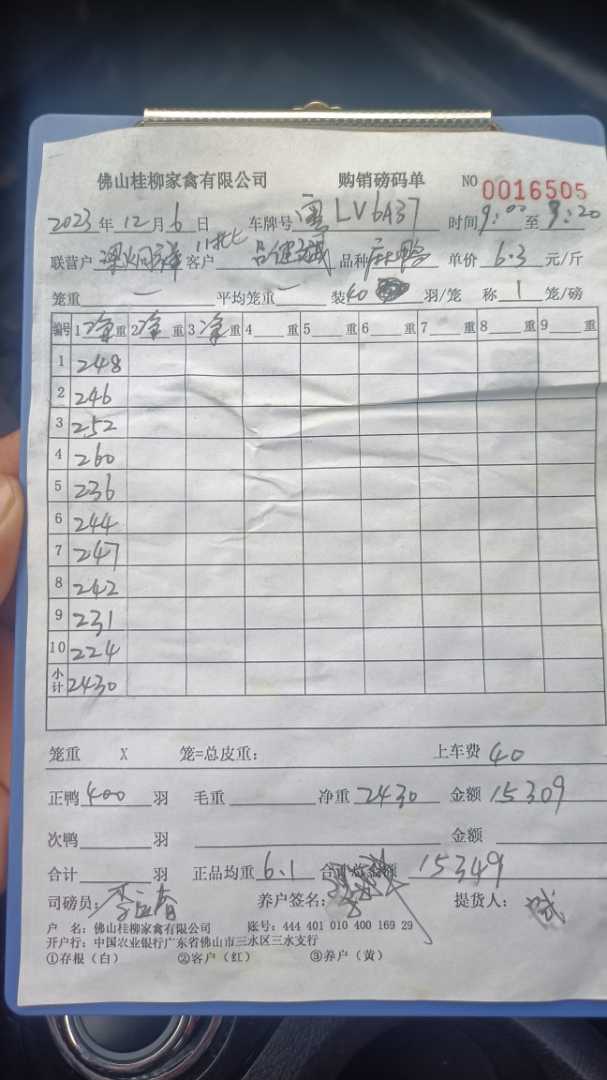 佛山桂柳家禽有限公司 购销磅码单 NO 0016505
2023年12月6日 车牌号 粤LV6A37 时间 9:00 至 9:20
联营户 客户 品种 麻鸭 单价 6.3 元/斤
笼重 一 平均笼重 一 装 40 羽/笼 称 1 笼/磅
编号 1 净 重 2 净 重 3 净 重 4 重 5 重 6 重 7 重 8 重 9 重
1 248
2 246
3 252
4 260
5 236
6 244
7 247
8 242
9 231
10 224
小计 2430
笼重 X 笼=总皮重： 上车费 40
正鸭 400 羽 毛重 净重 2430 金额 15309
次鸭 羽 金额
合计 羽 正品均重 6.1 合计总金额 15349
司磅员： 养户签名： 提货人：
户 名：佛山桂柳家禽有限公司 账号：444 401 010 400 169 29
开户行：中国农业银行广东省佛山市三水区三水支行
①存根（白） ②客户（红） ③养户（黄）